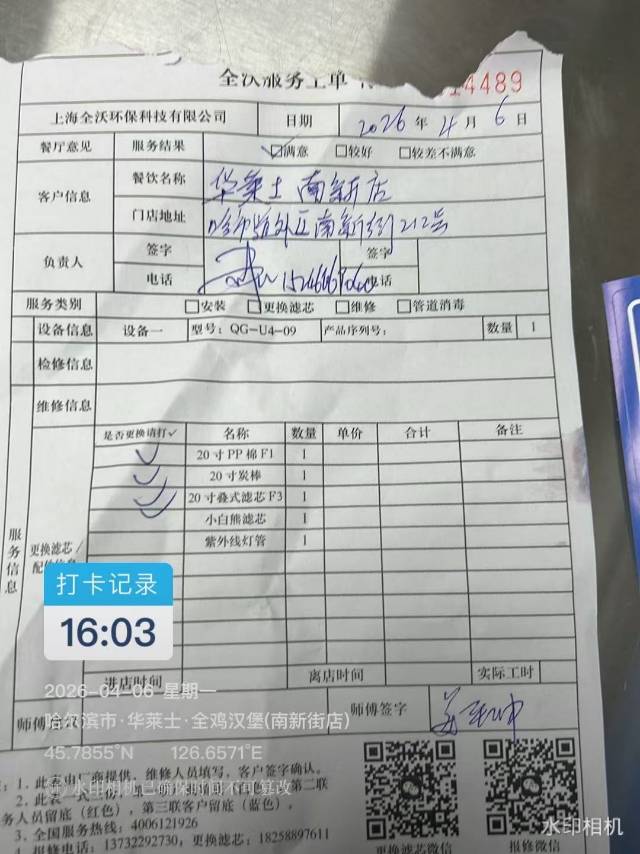 全沃服务工单
14489
上海全沃环保科技有限公司 日期 2026 年 4 月 6 日
餐厅意见 服务结果 ☑满意 □较好 □较差不满意
客户信息 餐饮名称 华莱士南新店
门店地址 哈尔滨外区南新街212号
负责人 签字 签字
电话 电话
服务类别 □安装 □更换滤芯 □维修 □管道消毒
设备信息 设备一 型号：QG-U4-09 产品序列号： 数量 1
检修信息
维修信息
是否更换请打✓ 名称 数量 单价 合计 备注
✓ 20寸PP棉F1 1
✓ 20寸炭棒 1
✓ 20寸叠式滤芯F3 1
小白熊滤芯 1
紫外线灯管 1
服务信息
更换滤芯/
打卡记录
16:03
进店时间 离店时间 实际工时
2026-04-06 星期一
师傅 师傅签字
哈尔滨市·华莱士·全鸡汉堡(南新街店)
45.7855°N 126.6571°E
1、此表由厂商提供，维修人员填写，客户签字确认。
水印相机已确保时间不可篡改
2、此表一式三 第二联
务人员留底（红色），第三联客户留底（蓝色），
3、全国服务热线：4006121926
4、报修电话：13732292730，更换滤芯：18258897611
更换滤芯微信 报修微信
水印相机